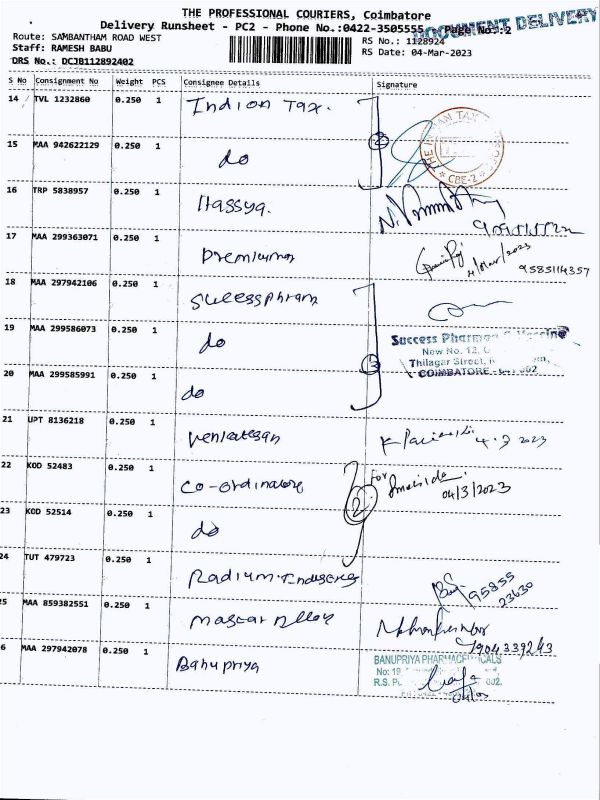 THE PROFESSIONAL COURIERS, Coimbatore
Delivery Runsheet - PC2 - Phone No.:0422-3505555
Page No.:2
DOCUMENT DELIVERY
Route: SAMBANTHAM ROAD WEST
RS No.: 1128924
Staff: RAMESH BABU
RS Date: 04-Mar-2023
DRS No.: DCJB112892402
S No Consignment No Weight PCS Consignee Details Signature
14 TVL 1232860 0.250 1 Indian Tax.
THE INDIAN TAX CBE-2
15 MAA 942622129 0.250 1 do
16 TRP 5838957 0.250 1 Hassya.
17 MAA 299363071 0.250 1 Premiumor
4/Mar/2023
9585114357
18 MAA 297942106 0.250 1 Sucessphram
19 MAA 299586073 0.250 1 do
3
Success Pharma
New No. 12,
Thilagar Street,
COIMBATORE
20 MAA 299585991 0.250 1 do
21 UPT 8136218 0.250 1 Venkatesan
4.3 2023
22 KOD 52483 0.250 1 Co-ordinators
2
For
04/3/2023
23 KOD 52514 0.250 1 do
24 TUT 479723 0.250 1 Radium.
95855
23630
5 MAA 859382551 0.250 1 Mascar Alloy
7904339243
6 MAA 297942078 0.250 1 Banupriya
BANUPRIYA PHARMACEUTICALS
No: 19
R.S. 002.
04/03